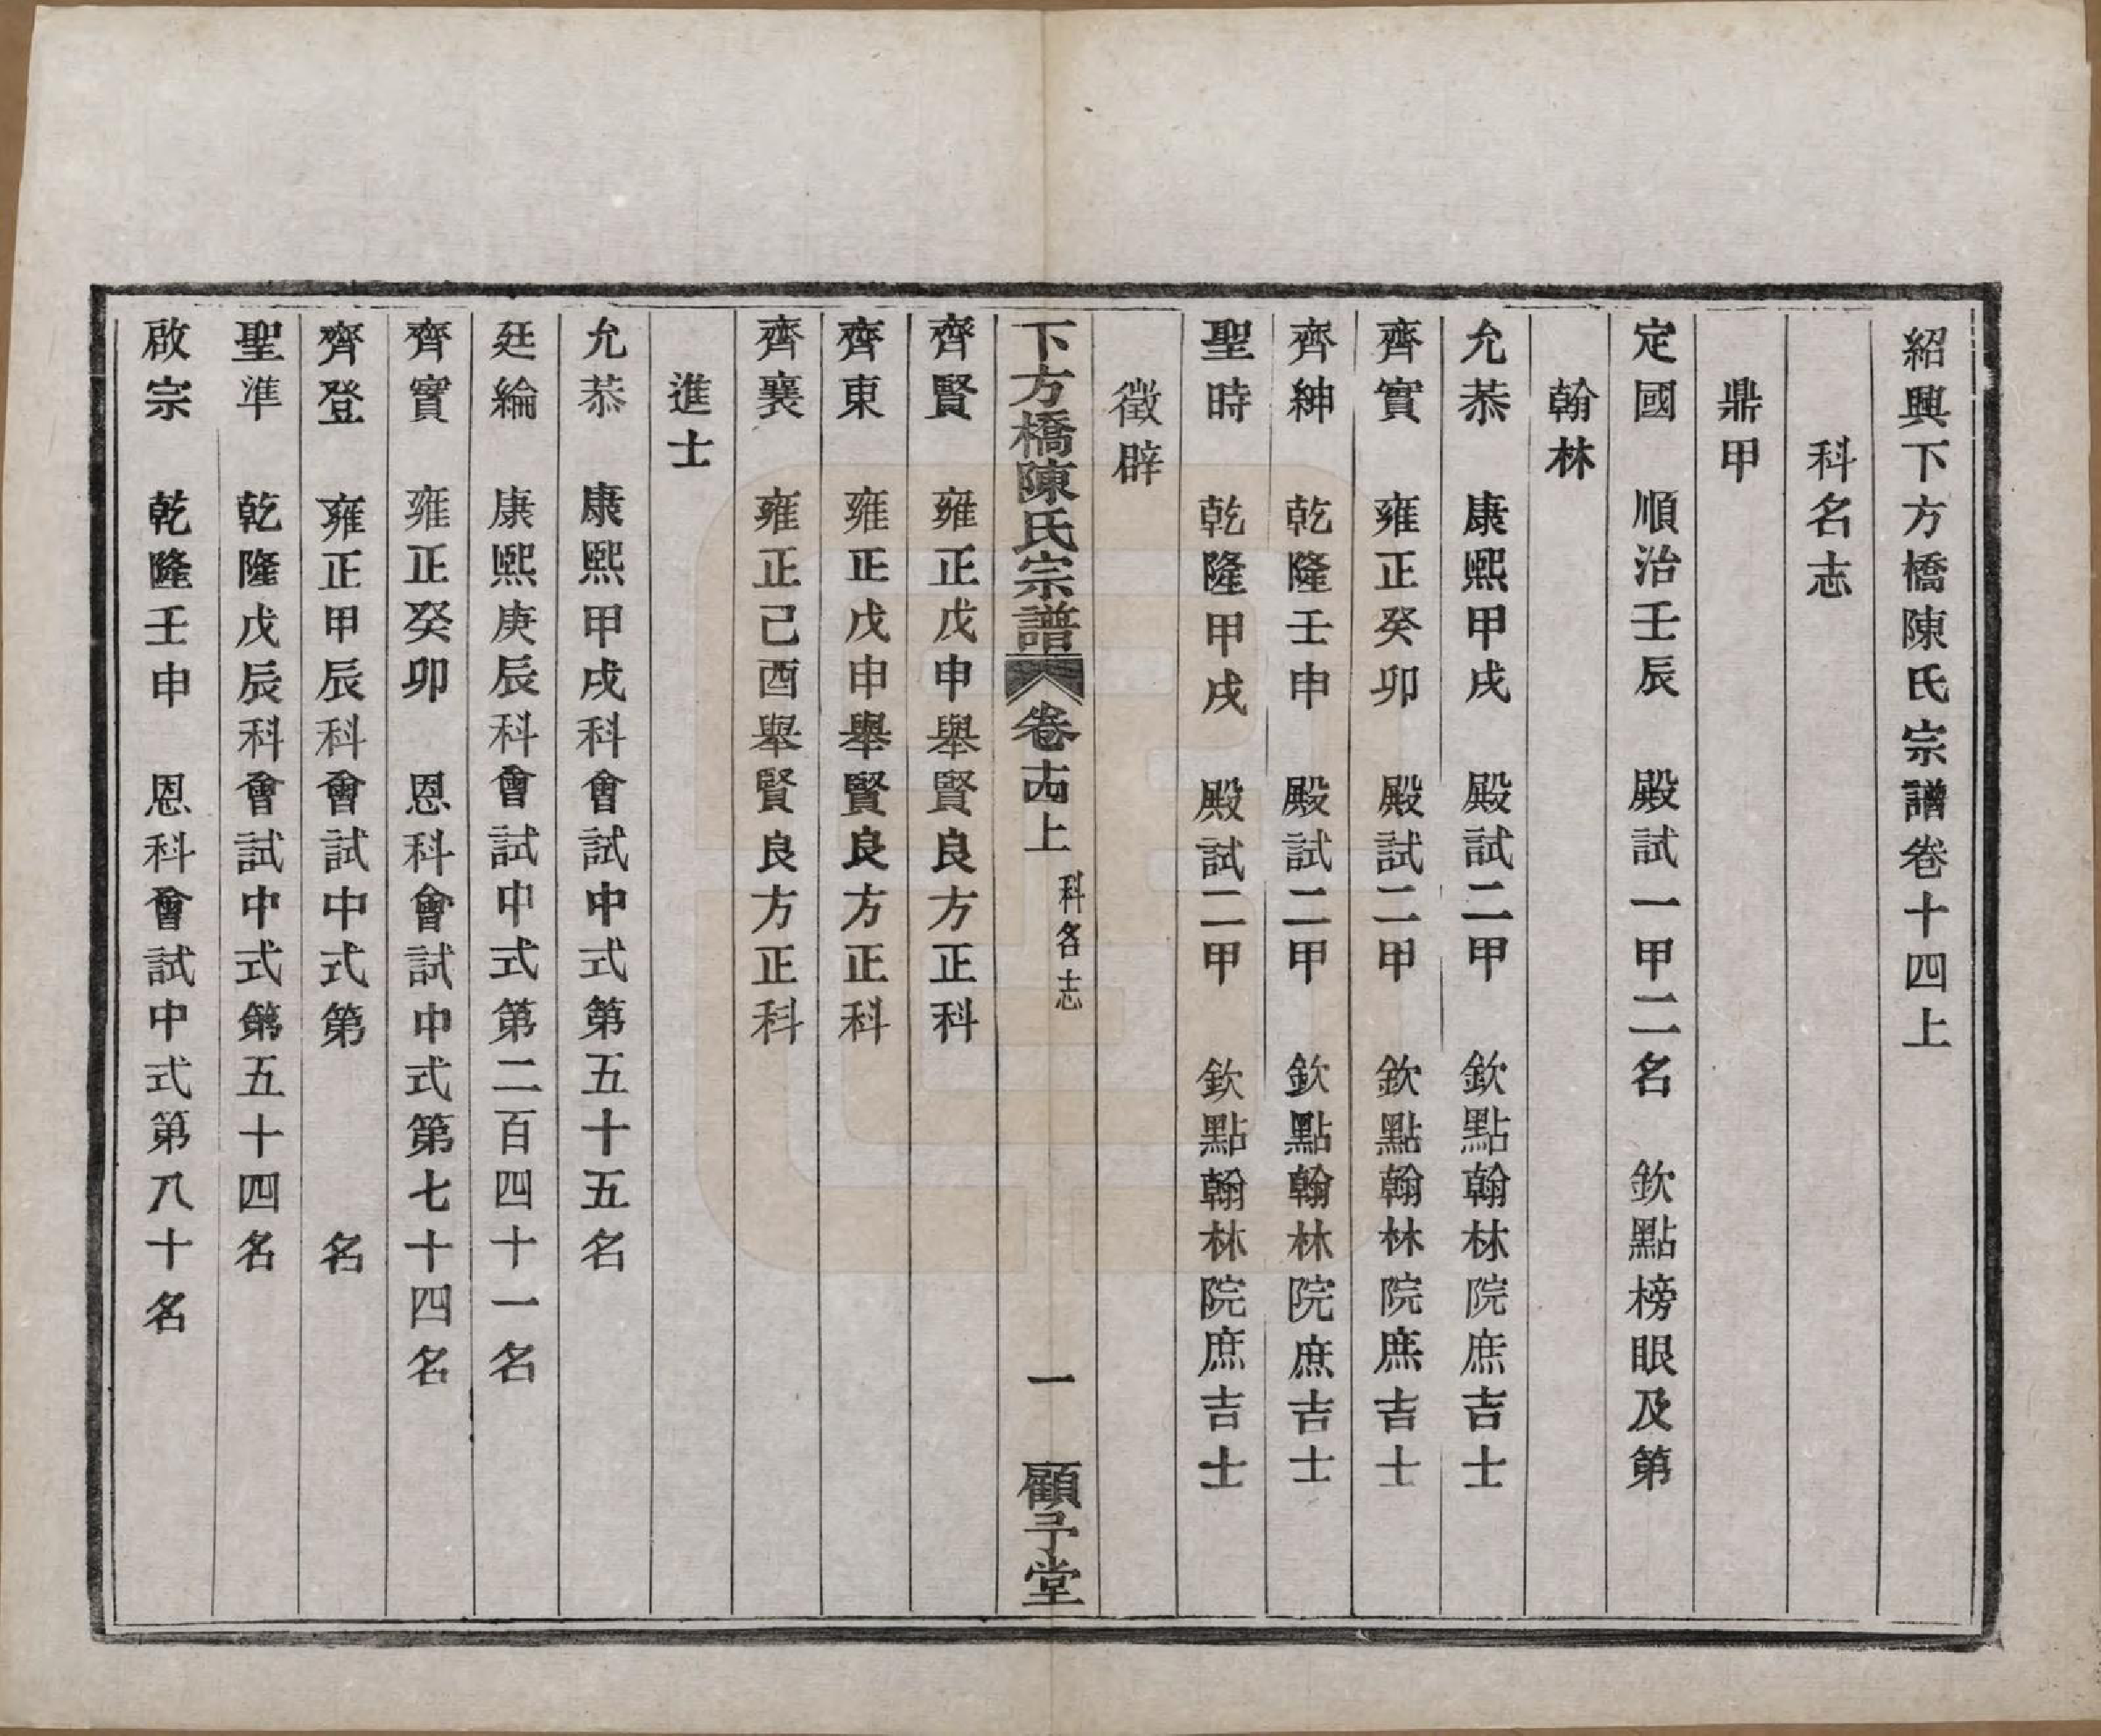 紹興下方橋陳氏宗譜卷十四上
科名志
鼎甲
定國　順治壬辰　殿試一甲二名　欽點榜眼及第
翰林
允恭　康熙甲戌　殿試二甲　欽點翰林院庶吉士
齊實　雍正癸卯　殿試二甲　欽點翰林院庶吉士
齊紳　乾隆壬申　殿試二甲　欽點翰林院庶吉士
聖時　乾隆甲戌　殿試二甲　欽點翰林院庶吉士
徵辟
下方橋陳氏宗譜　卷十四上　科名志　一　顧予堂
齊賢　雍正戊申舉賢良方正科
齊東　雍正戊申舉賢良方正科
齊襄　雍正己酉舉賢良方正科
進士
允恭　康熙甲戌科會試中式第五十五名
廷綸　康熙庚辰科會試中式第二百四十一名
齊實　雍正癸卯　恩科會試中式第七十四名
齊登　雍正甲辰科會試中式第　　　名
聖準　乾隆戊辰科會試中式第五十四名
啟宗　乾隆壬申　恩科會試中式第八十名